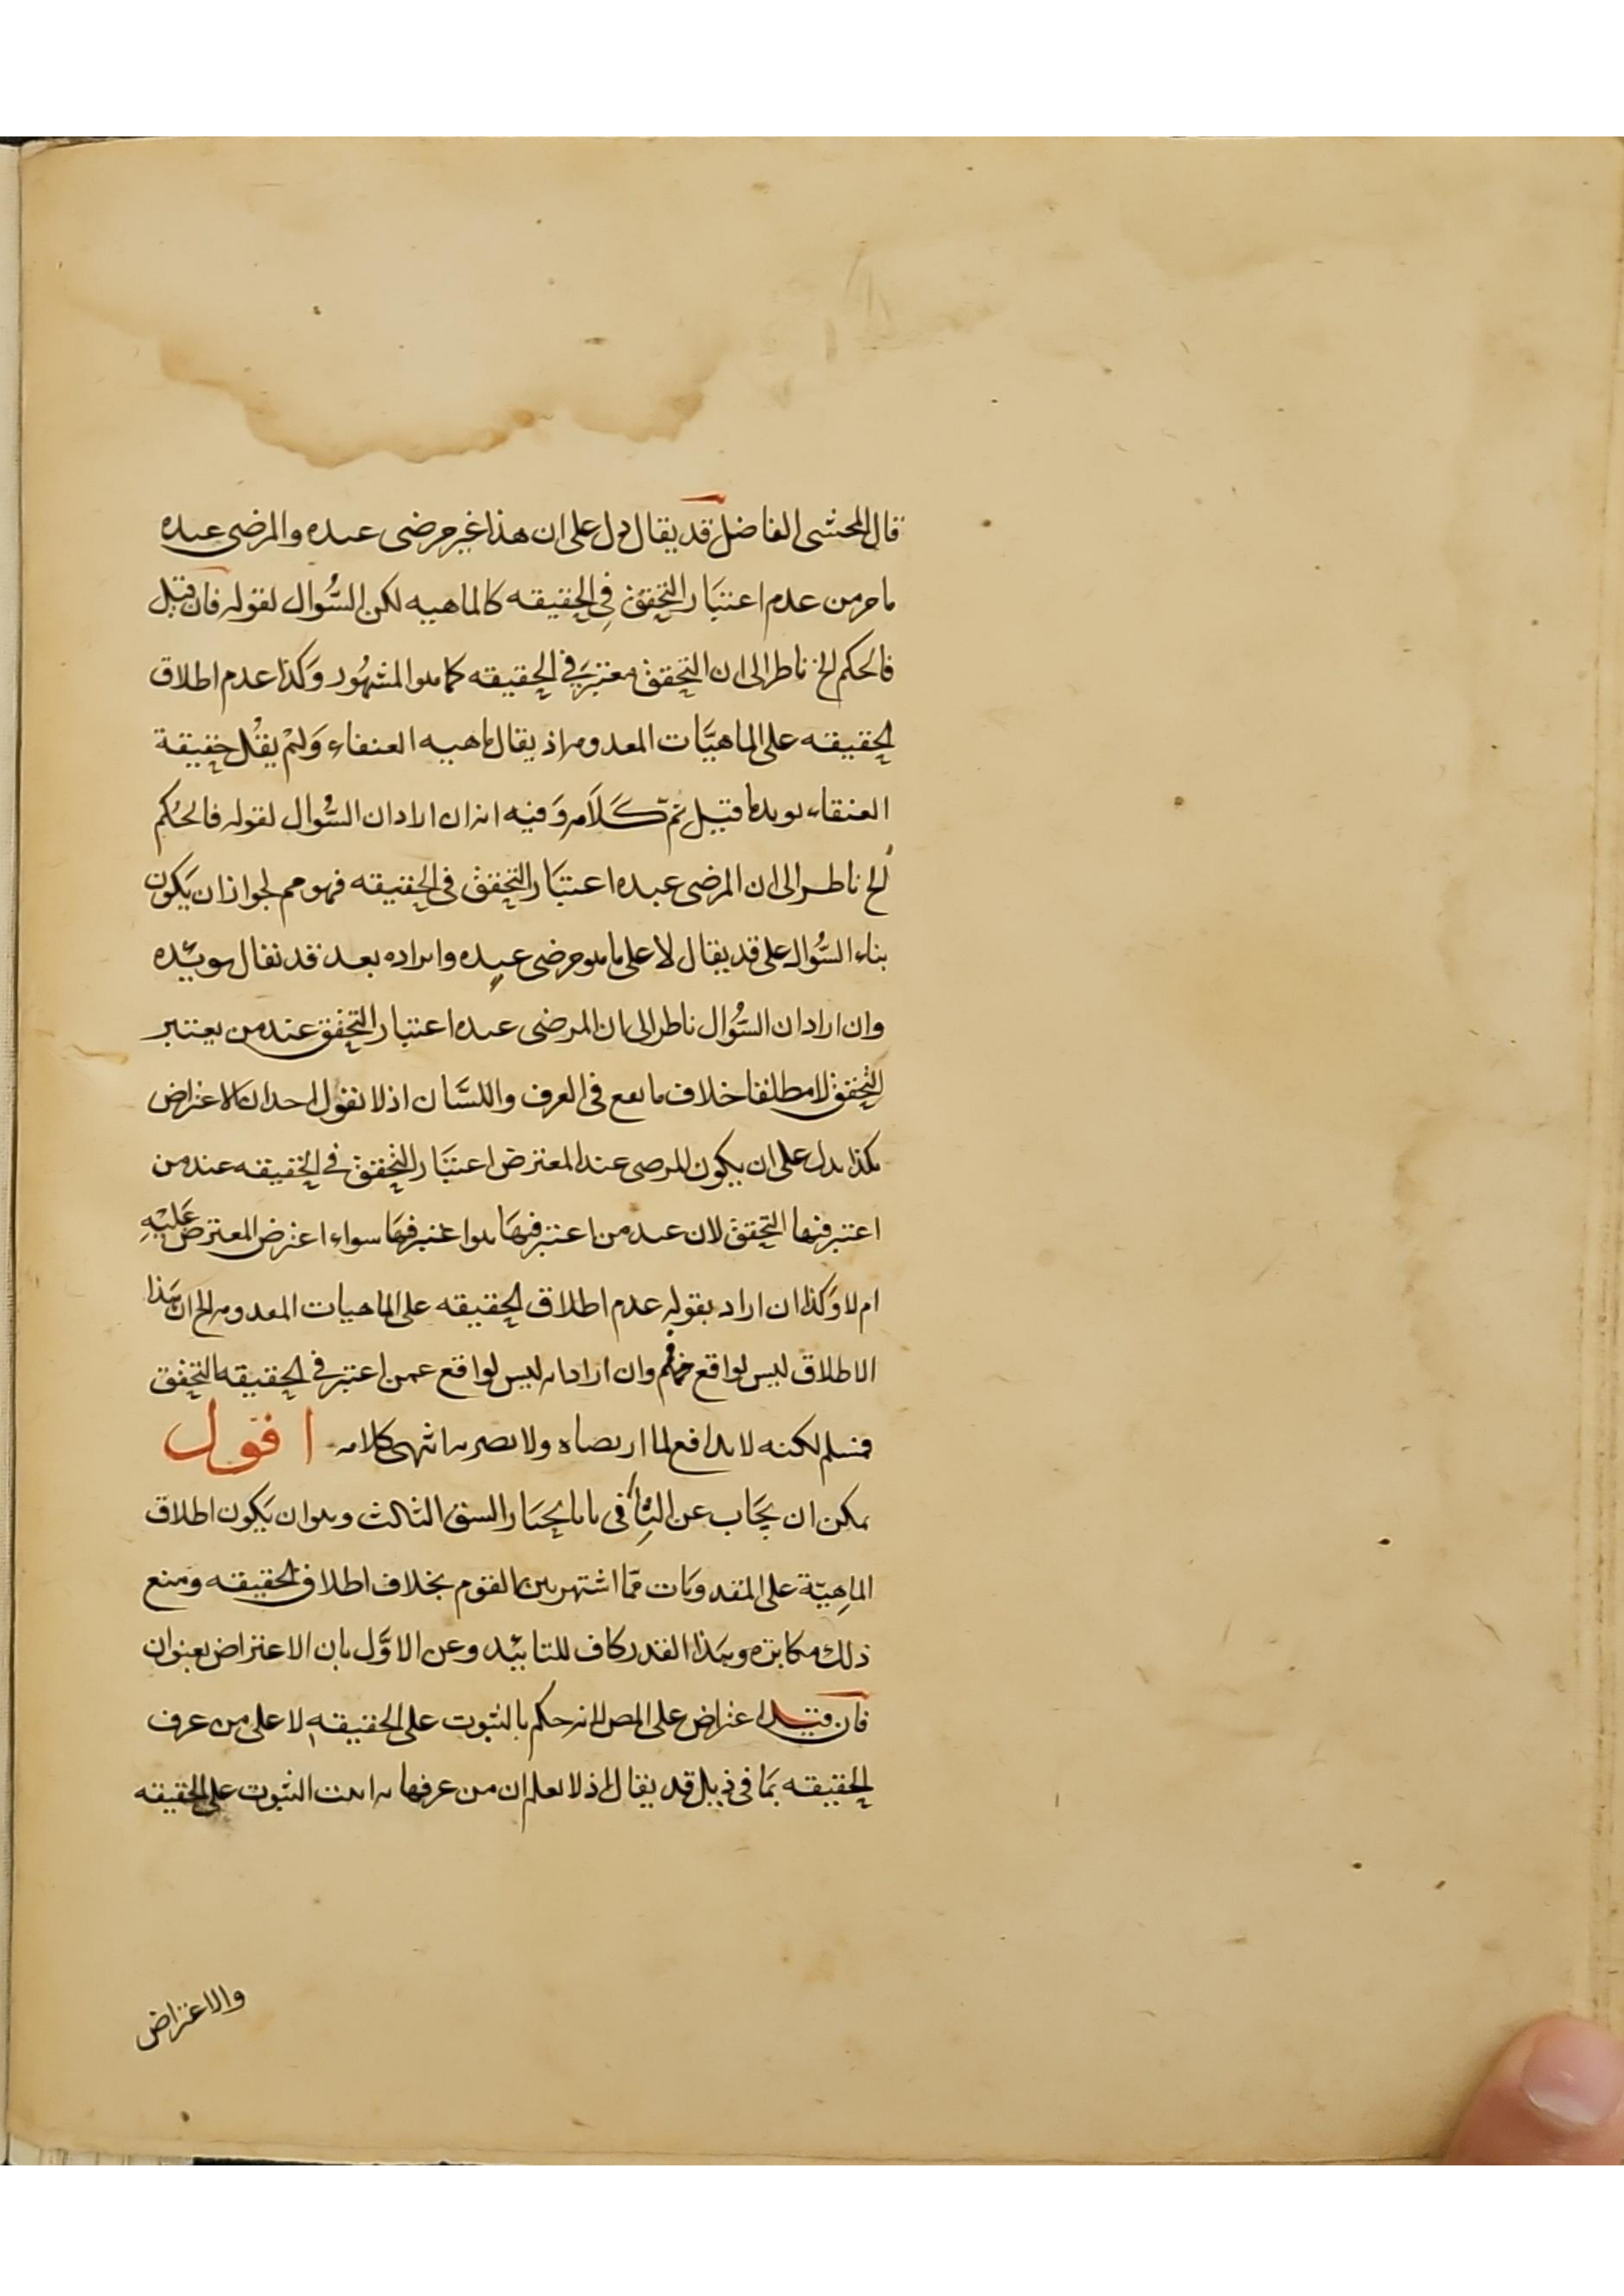 قال المحشى الفاضل قد يقال دل على ان هذا غير مرضى عنده والمرضى عنده
ما مر من عدم اعتبار التحقق فى الحقيقه كالماهيه لكن السُّوال بقوله فان قيل
فالحكم الخ ناظر الى ان التحقق معتبر فى الحقيقه كما هو المشهُور وَكذا عدم اطلاق
الحقيقه على الماهيَّات المعدومه اذ يقال ماهيه العنقاء وَلمْ يقُل حقيقة
العنقاء يويد ما قيل تمّ كَلَامه وَفيه انه ان اراد ان السُّوال بقوله فالحُكم
الخ ناظر الى ان المرضى عنده اعتبَار التحقق فى الحقيقه فهو مم لجواز ان يَكون
بناء السُّوال على قد يقال لا على ما هو مرضى عنده وايراده بعد قد يقال يويّده
وان اراد ان السُّوال ناظر الى ان المرضى عنده اعتبار التحقق عند من يعتبر
التحقق لا مطلقا خلاف ما يقع فى العرف واللسَّان اذ لا يقول احد ان الاعتراض
هكذا يدل على ان يكون المرضى عند المعترض اعتبَار التحقق فى الحقيقه عند من
اعتبر فيها التحقق لان عند من اعتبر فيهَا هو اعتبر فيهَا سواء اعترض المعترض عَليْهِ
ام لا وَكذا ان اراد بقوله عدم اطلاق الحقيقه على الماهيات المعدومه الخ ان هَذا
الاطلاق ليس بواقع فمم وان اراد انه ليس بواقع عمن اعتبر فى الحقيقه التحقق
فمسلم لكنه لا يدافع لما ارتضاه ولا يضره انتهى كلامه اقول
يمكن ان يجَاب عن الثِّانى بانا يختَار الشق الثالث وهو ان يَكون اطلاق
الماهِيّة على المعدومَات ممّا اشتهر بين القوم بخلاف اطلاق الحقيقه ومنع
ذلك مكابره وهَذا القدر كاف للتاييْد وعن الاوَّل بان الاعتراض بعنوان
فان قيل اعتراض على المص لانه حكم بالثبوت على الحقيقه لا على من عرف
الحقيقه بمَا فى ذيل قد يقال اذ لا يعلم ان من عرفها به اثبت الثبوت على الحقيقه
والاعتراض